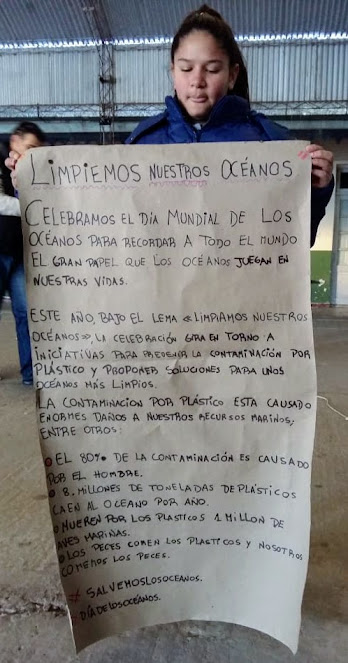 LIMPIEMOS NUESTROS OCÉANOS
CELEBRAMOS EL DÍA MUNDIAL DE LOS
OCÉANOS PARA RECORDAR A TODO EL MUNDO
EL GRAN PAPEL QUE LOS OCÉANOS JUEGAN EN
NUESTRAS VIDAS.
ESTE AÑO, BAJO EL LEMA «LIMPIAMOS NUESTROS
OCÉANOS», LA CELEBRACIÓN GIRA EN TORNO A
INICIATIVAS PARA PREVENIR LA CONTAMINACIÓN POR
PLÁSTICO Y PROPONER SOLUCIONES PARA UNOS
OCÉANOS MÁS LIMPIOS.
LA CONTAMINACION POR PLÁSTICO ESTA CAUSADO
ENORMES DAÑOS A NUESTROS RECURSOS MARINOS;
ENTRE OTROS:
EL 80% DE LA CONTAMINACIÓN ES CAUSADO
POR EL HOMBRE.
8. MILLONES DE TONELADAS DE PLÁSTICOS
CAEN AL OCEANO POR AÑO.
MUEREN POR LOS PLASTICOS 1 MILLON DE
AVES MARIÑAS.
LOS PECES COMEN LOS PLASTICOS Y NOSOTROS
COMEMOS LOS PECES.
# SALVEMOSLOSOCEANOS.
DÍADELOSOCÉANOS.